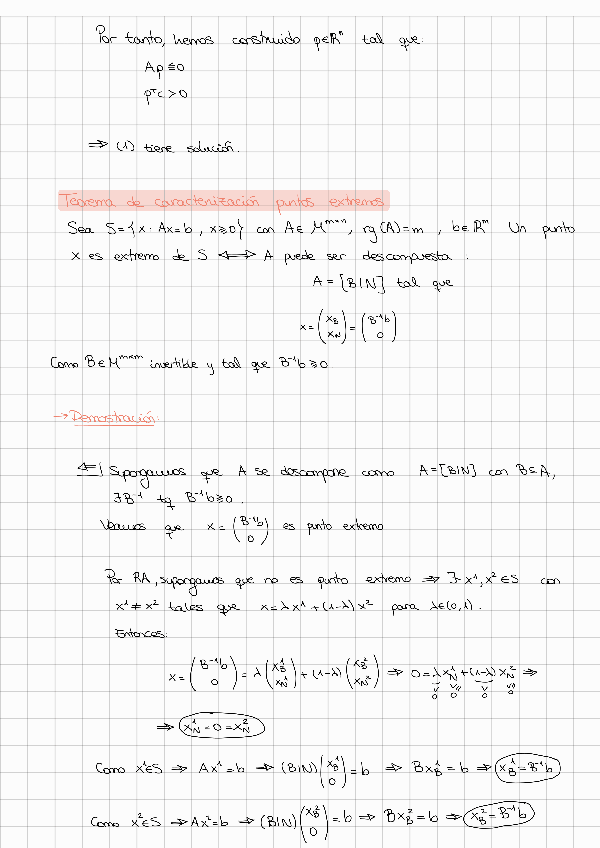 Por tanto, hemos construido p∈ℝⁿ tal que:
Ap ≤ 0
pᵀc > 0
⇒ (1) tiene solución.
Teorema de caracterización puntos extremos
Sea S={x · Ax=b, x≥0} con A∈M^{m×n}, rg(A)=m, b∈ℝᵐ Un punto
x es extremo de S ⟺ A puede ser descompuesta.
A=[B|N] tal que
x = (x_B x_N) = (B⁻¹b 0)
Como B∈M^{m×m} invertible y tal que B⁻¹b≥0
→ Demostración:
⇐| Supongamos que A se descompone como A=[B|N] con B⊆A,
∃B⁻¹ tq B⁻¹b≥0.
Veamos que x = (B⁻¹b 0) es punto extremo
Por RA, supongamos que no es punto extremo ⇒ ∃ x¹, x² ∈ S con
x¹ ≠ x² tales que x = λx¹ + (1-λ)x² para λ∈(0,1).
Entonces:
x = (B⁻¹b 0) = λ (x_B¹ x_N¹) + (1-λ) (x_B² x_N²) ⇒ 0 = λx_N¹ + (1-λ)x_N² ⇒
∨ ∨// ∨ ∨//
0 0 0 0
⇒ x_N¹ = 0 = x_N²
Como x¹∈S ⇒ Ax¹=b ⇒ (B|N) (x_B¹ 0) = b ⇒ Bx_B¹ = b ⇒ x_B¹ = B⁻¹b
Como x²∈S ⇒ Ax²=b ⇒ (B|N) (x_B² 0) = b ⇒ Bx_B² = b ⇒ x_B² = B⁻¹b